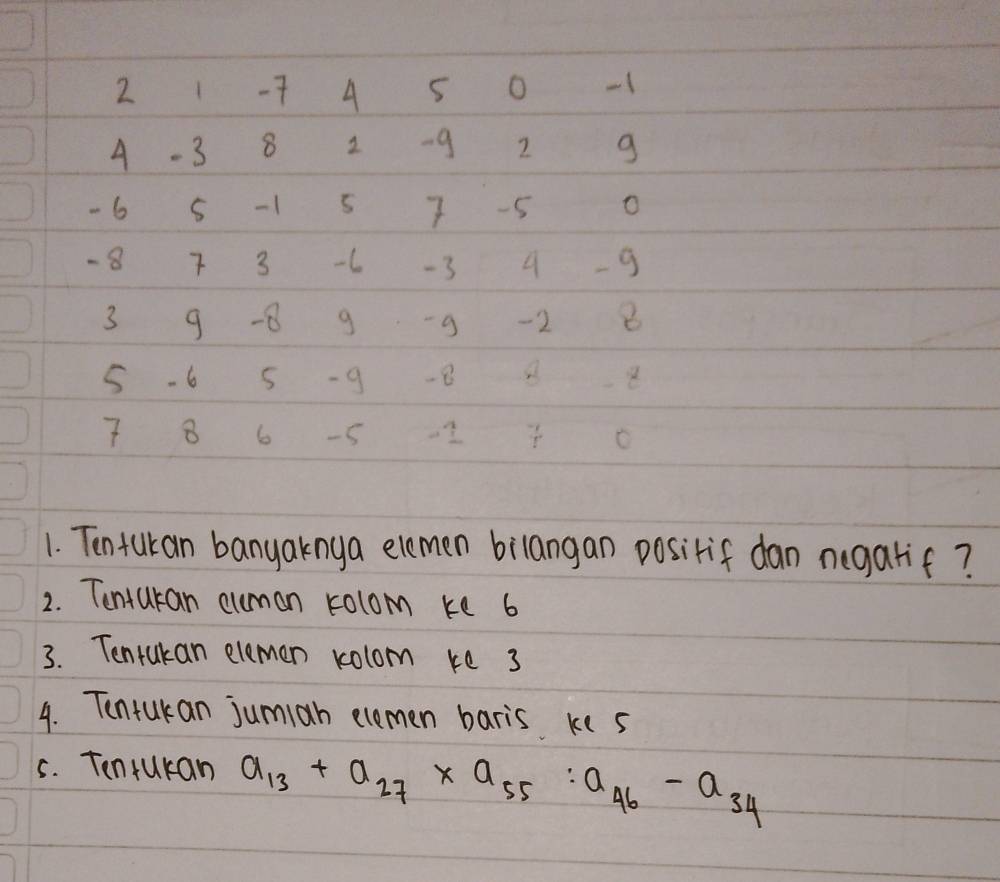 2 1 -7 4 5 0 -1
4 -3 8 2 -9 2 9
-6 5 -1 5 7 -5 0
-8 7 3 -6 -3 4 -9
3 9 -8 9 -9 -2 8
5 -6 5 -9 -8 8 -8
7 8 6 -5 -1 7 0
1. Tentukan banyaknya elemen bilangan positif dan negatif ?
2. Tentukan elemen kolom ke 6
3. Tentukan elemen kolom ke 3
4. Tentukan jumlah elemen baris ke 5
5. Tentukan a₁₃ + a₂₇ × a₅₅ : a₄₆ - a₃₄